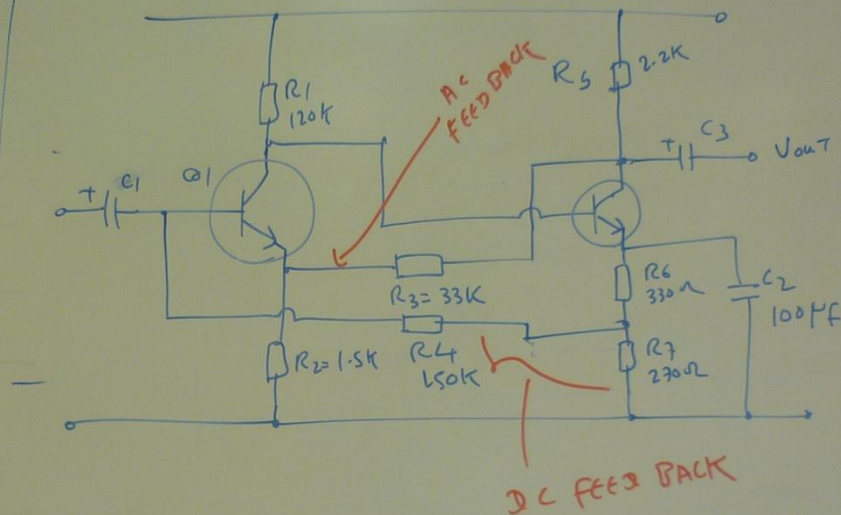 R1
120K
AC
FEED BACK
R5
2.2K
+
C3
Vout
+
C1
Q1
R3 = 33K
R6
330Ω
C2
100µf
R2= 1.5K
R4
150K
R7
270Ω
DC FEED BACK